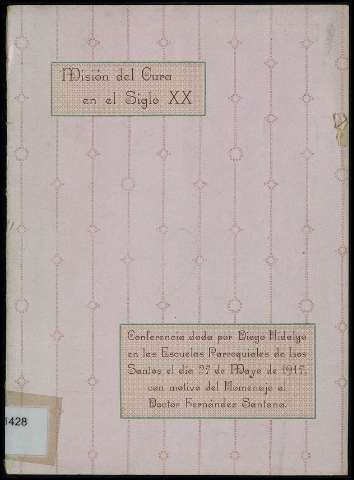 Misión del Cura
en el Siglo XX
Conferencia dada por Diego Hidalgo
en las Escuelas Parroquiales de Los
Santos el día 27 de Mayo de 1947,
con motivo del Homenaje al
Doctor Fernández Santana.
1428